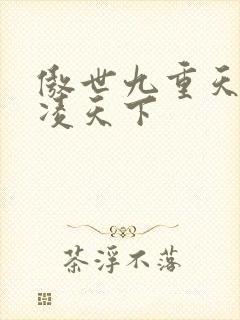 傲世九重天
凌天下
茶浮不落